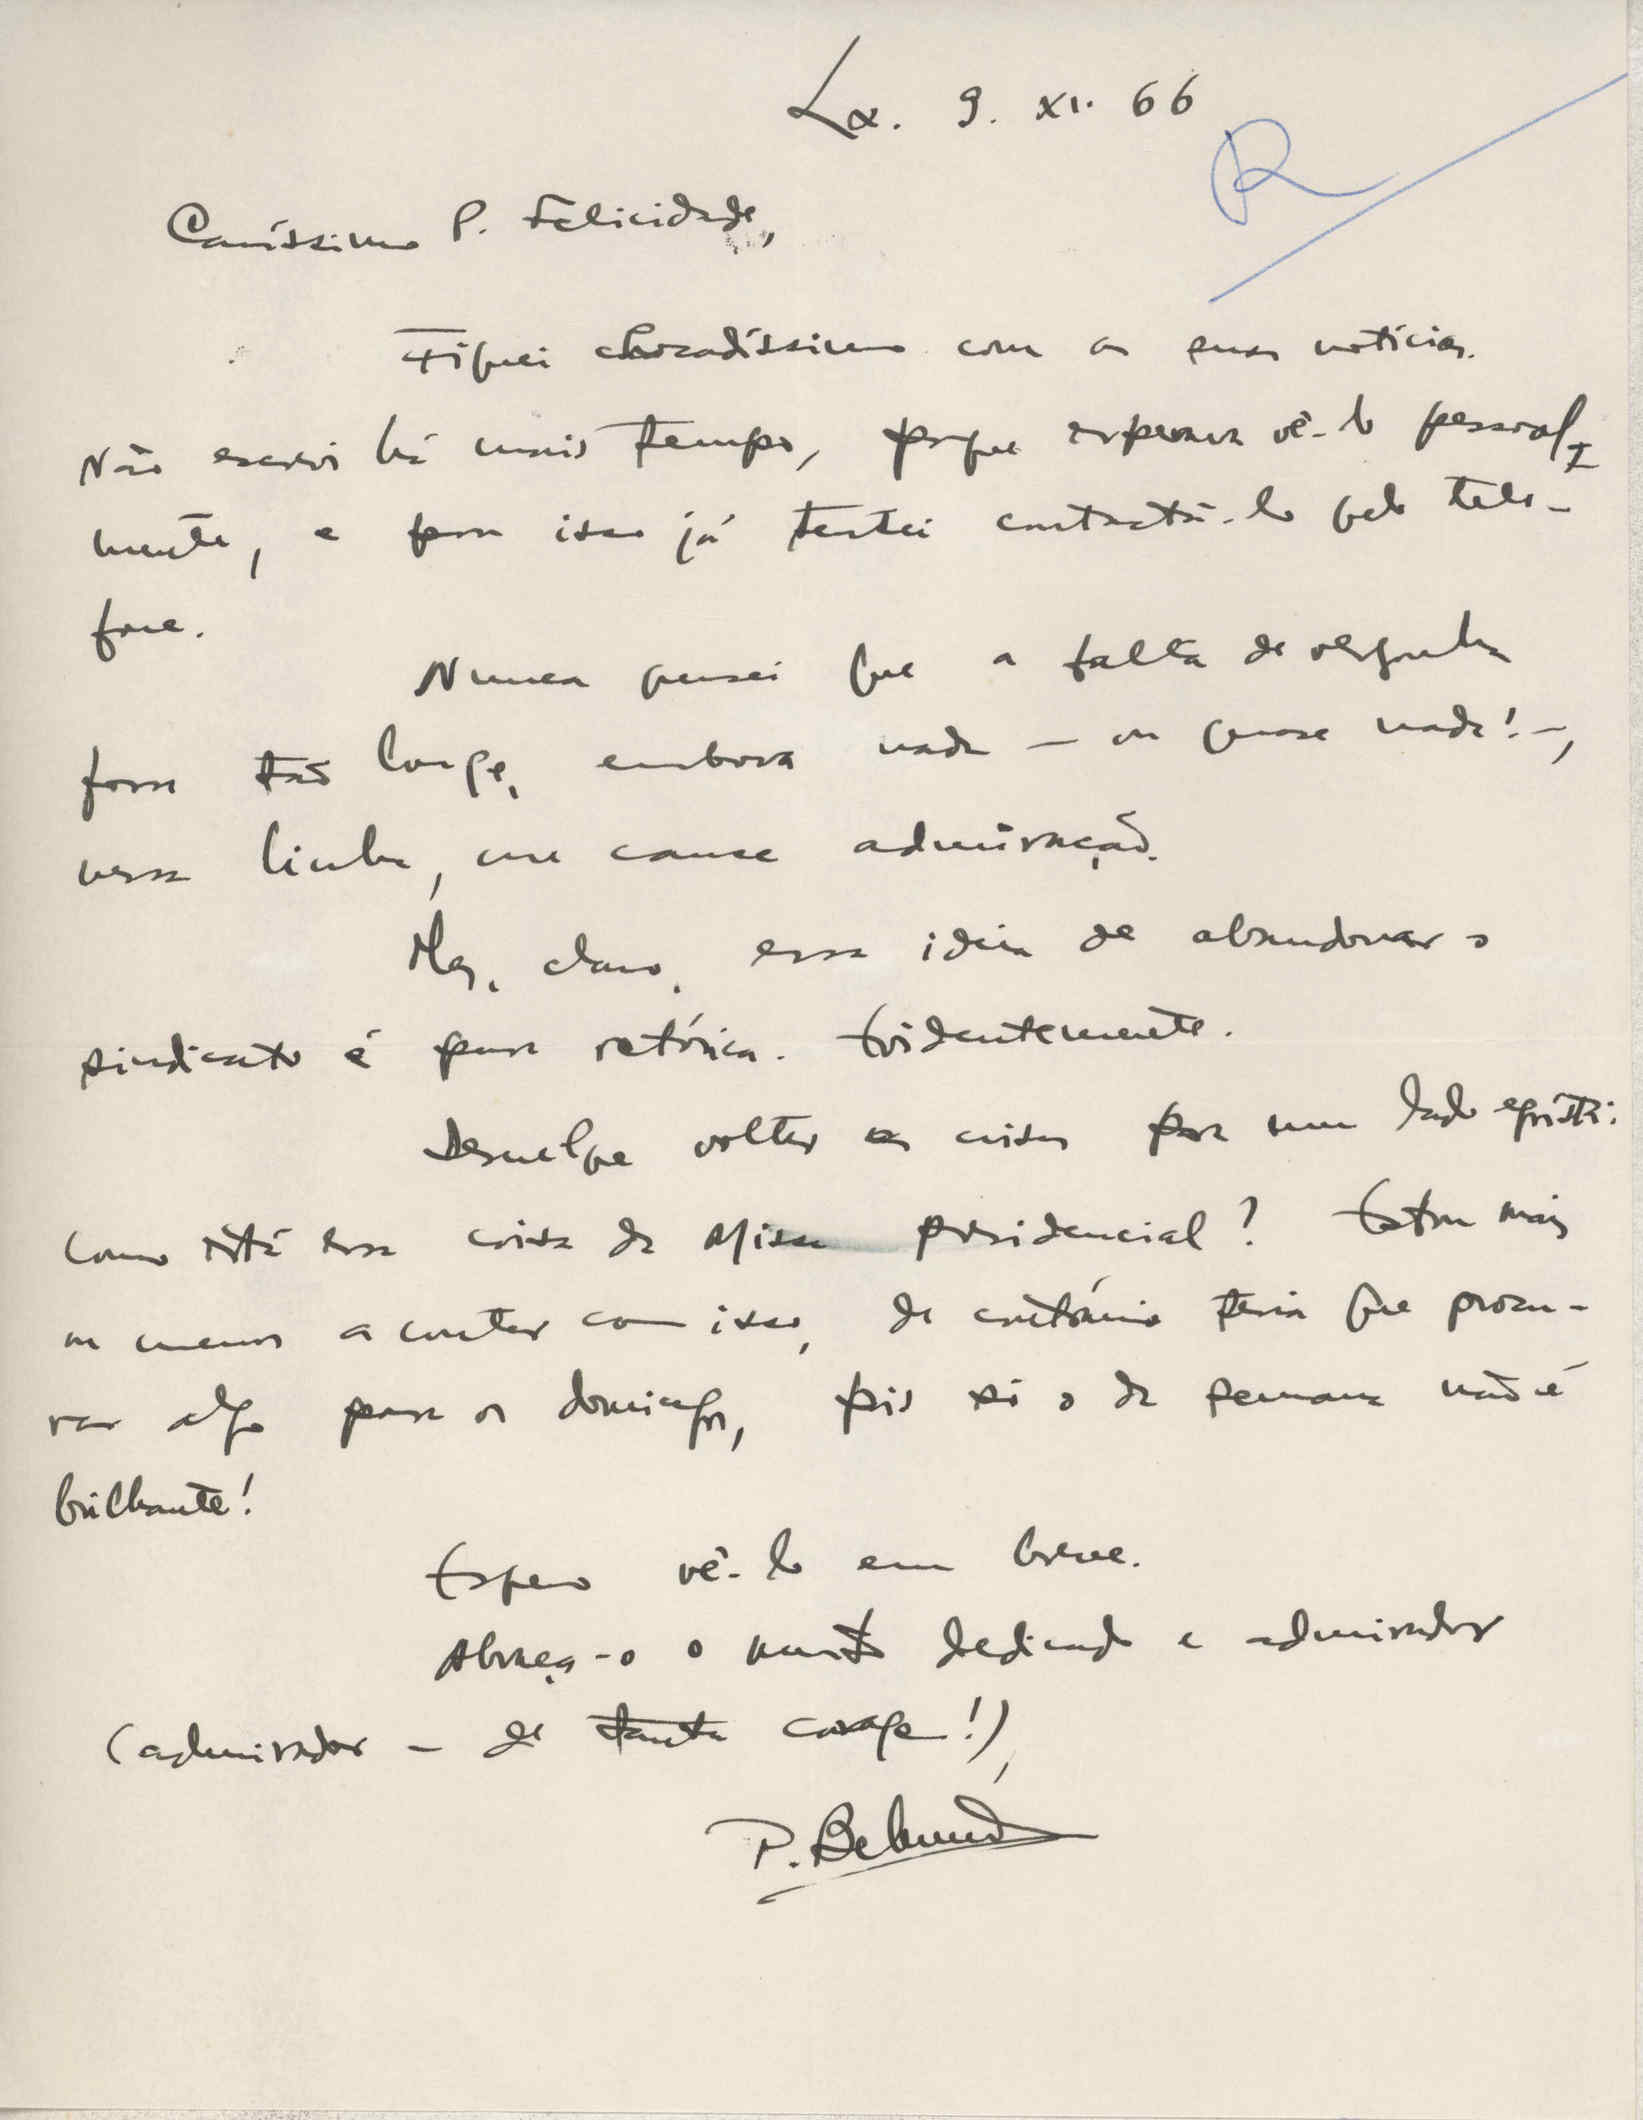 Lx. 9. XI. 66
R
Caríssimo P. Felicidade,
Fiquei chocadíssimo com as suas notícias.
Não escrevi há mais tempo, porque esperava vê-lo pessoal-
mente, e para isso já tentei contactá-lo pelo tele-
fone.
Nunca pensei que a falta de vergonha
fosse tão longe, embora nada — ou quase nada! —,
nessa linha, me cause admiração.
Mas, claro, essa ideia de abandonar o
sindicato é pura retórica. Evidentemente.
Desculpe voltar as coisas para um lado egoísta:
Como está essa coisa da Missa presidencial? Estou mais
ou menos a contar com isso, de contrário teria que procu-
rar algo para os domingos, pois só o da semana não é
brilhante!
Espero vê-lo em breve.
Abraça-o o muito dedicado e admirador
(admirador — de tanta coragem!),
P. Belmud